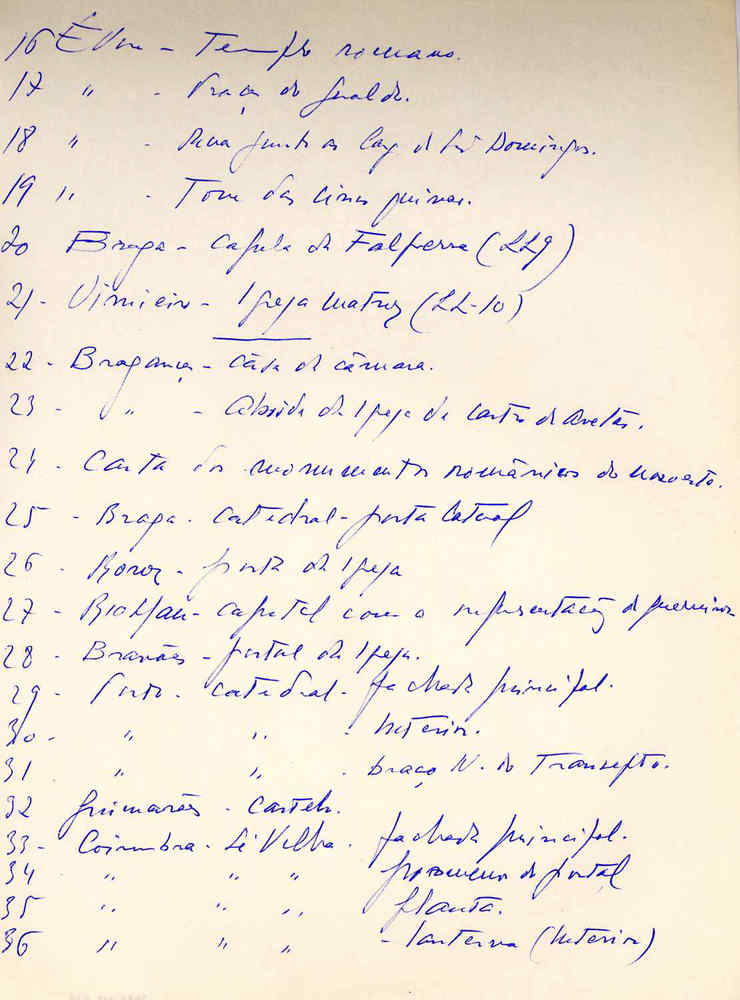 16 Évora - Templo romano.
17 " - Praça do Giraldo.
18 " - Rua junto ao Larg. de São Domingos.
19 " - Torre das cinco quinas.
20 Braga - Capela da Falperra (LL9)
21 - Vimieiro - Igreja Matriz (LL-10)
22 - Bragança - Casa da câmara.
23 - " - Abside da Igreja de Castro de Avelãs.
24 - Carta dos monumentos românicos do noroeste.
25 - Braga - catedral - porta lateral
26 - Roriz - porta da Igreja
27 - Rio Mau - capitel com a representação de guerreiros
28 - Bravães - portal da Igreja.
29 - Porto - catedral - fachada principal.
30 - " " - Interior.
31 " " - braço N. do Transepto.
32 Guimarães - Castelo.
33 - Coimbra - Sé Velha - fachada principal.
34 " " " pormenor do portal
35 " " " planta.
36 " " " - lanterna (Interior)